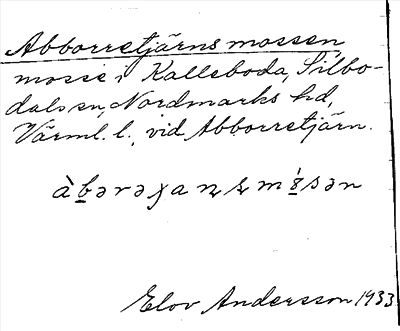 Abborretjärnsmossen,
mosse i Kalleboda, Silbo-
dals sn, Nordmarks hd,
Värml. l., vid Abborretjärn.
Elov Andersson 1933